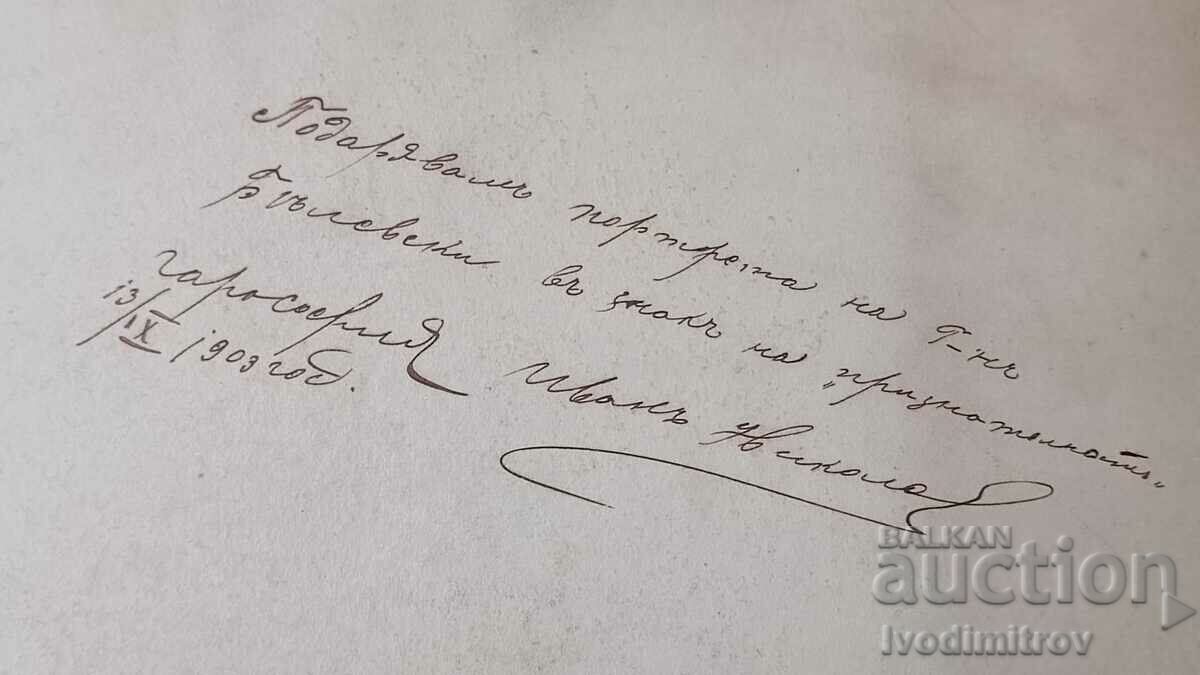 Подарявамъ портрета на Г-нъ
Бѣлевски въ знакъ на „признателность“
гара София
13/IX 1903 год.
Иванъ Николов
BALKAN
auction
Ivodimitrov